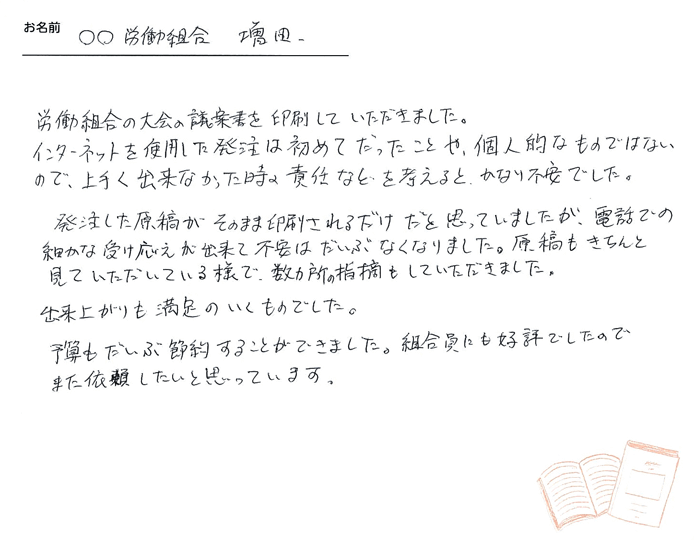 お名前 〇〇 労働組合 増田
労働組合の大会の議案書を印刷していただきました。
インターネットを使用した発注は初めてだったことや、個人的なものではない
ので、上手く出来なかった時の責任などを考えると、かなり不安でした。
発注した原稿がそのまま印刷されるだけだと思っていましたが、電話での
細かな受け応えが出来て不安はだいぶなくなりました。原稿もきちんと
見ていただいている様で、数カ所の指摘もしていただきました。
出来上がりも満足のいくものでした。
予算もだいぶ節約することができました。組合員にも好評でしたので
また依頼したいと思っています。